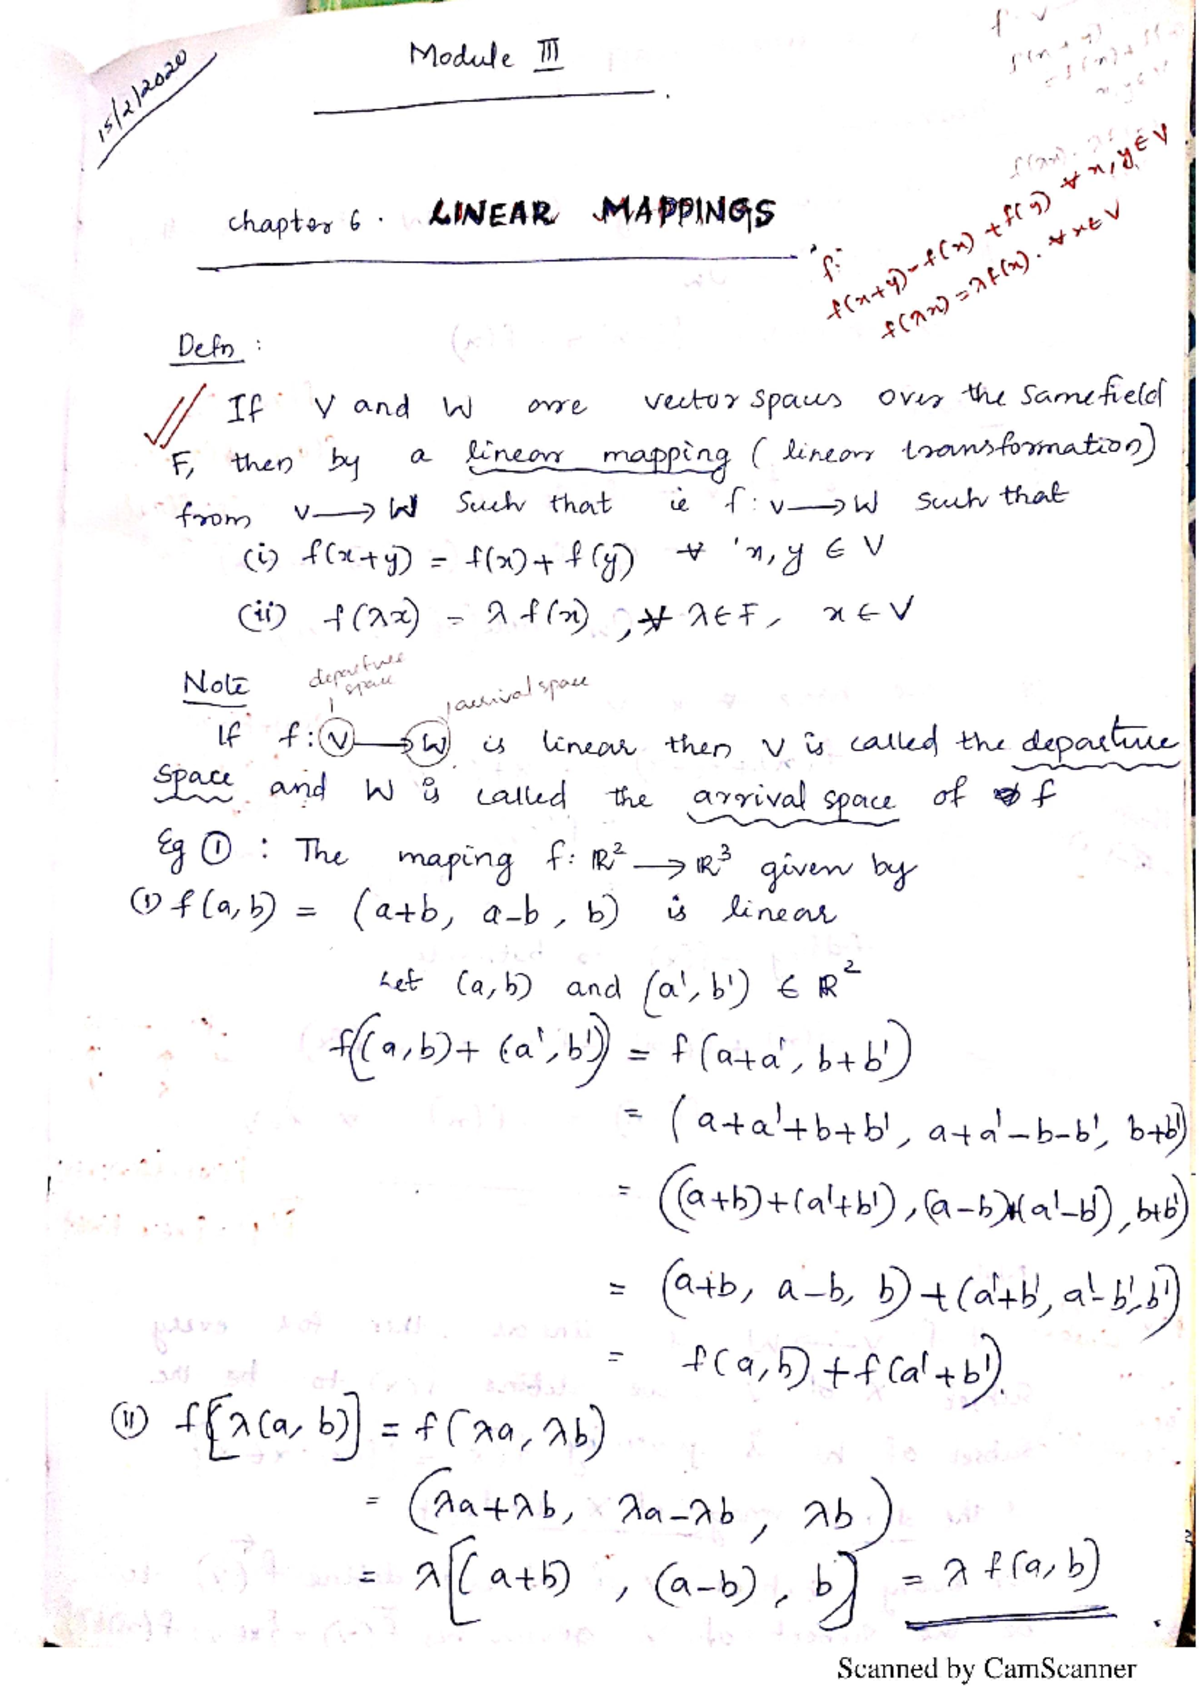 15/2/2020
Module III
Chapter 6. LINEAR MAPPINGS
f:
f(x+y) = f(x) + f(y) ∀ x, y ∈ V
f(λx) = λf(x). ∀ x ∈ V
Defn :
If V and W are vector spaces over the same field
F, then by a linear mapping (linear transformation)
from V → W Such that ie f: V → W such that
(i) f(x+y) = f(x) + f(y) ∀ x, y ∈ V
(ii) f(λx) = λ f(x), ∀ λ ∈ F, x ∈ V
Note
departure space
arrival space
If f: V → W is linear then V is called the departure
space and W is called the arrival space of f
Eg ① : The maping f: ℝ² → ℝ³ given by
(i) f(a, b) = (a+b, a-b, b) is linear
Let (a, b) and (a', b') ∈ ℝ²
f((a, b) + (a', b')) = f(a+a', b+b')
= (a+a'+b+b', a+a'-b-b', b+b')
= ((a+b)+(a'+b'), (a-b)+(a'-b'), b+b')
= (a+b, a-b, b) + (a'+b', a'-b', b')
= f(a, b) + f(a'+b').
(ii) f[λ(a, b)] = f(λa, λb)
= (λa+λb, λa-λb, λb)
= λ[(a+b), (a-b), b] = λ f(a, b)
Scanned by CamScanner